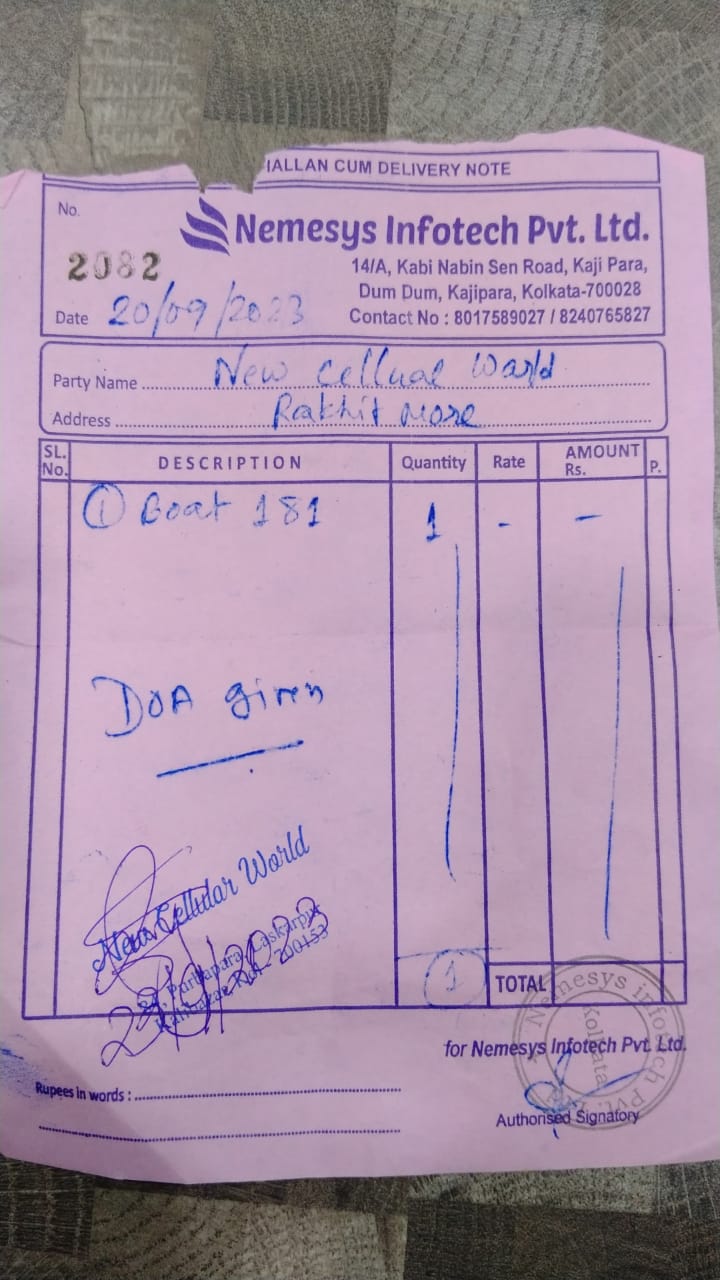 IALLAN CUM DELIVERY NOTE
No.
2082
Nemesys Infotech Pvt. Ltd.
14/A, Kabi Nabin Sen Road, Kaji Para,
Dum Dum, Kajipara, Kolkata-700028
Date 20/09/2023
Contact No : 8017589027 / 8240765827
Party Name New Celluae World
Address Rakhit More
SL. No. DESCRIPTION Quantity Rate AMOUNT Rs. P.
① Boat 181 1 - -
DOA given
New Cellular World
Purbapara, Laskarpur
Kol - 700153
1 TOTAL
Nemesys Infotech Pvt.
Kolkata
for Nemesys Infotech Pvt. Ltd.
Rupees in words :
Authorised Signatory